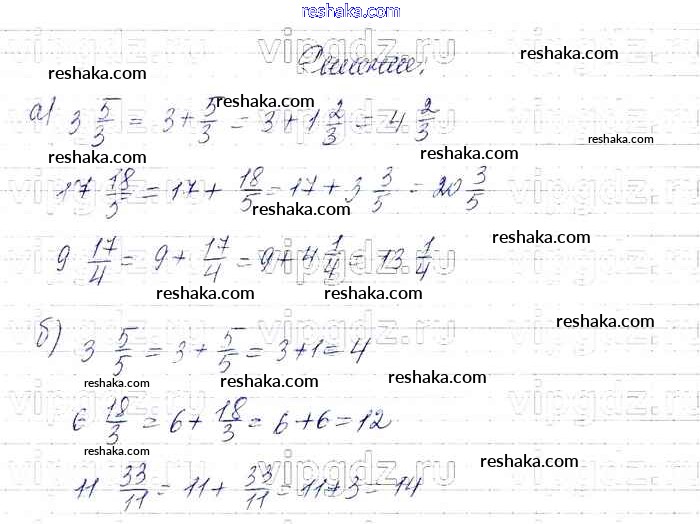 reshaka.com
Решение.
reshaka.com reshaka.com
reshaka.com
а) 3 5/3 = 3 + 5/3 = 3 + 1 2/3 = 4 2/3
reshaka.com
reshaka.com reshaka.com
17 18/5 = 17 + 18/5 = 17 + 3 3/5 = 20 3/5
reshaka.com
reshaka.com
9 17/4 = 9 + 17/4 = 9 + 4 1/4 = 13 1/4
reshaka.com reshaka.com
reshaka.com
б) 3 5/5 = 3 + 5/5 = 3 + 1 = 4
reshaka.com reshaka.com reshaka.com
6 18/3 = 6 + 18/3 = 6 + 6 = 12
reshaka.com
reshaka.com
11 33/11 = 11 + 33/11 = 11 + 3 = 14
vipgdz.ru